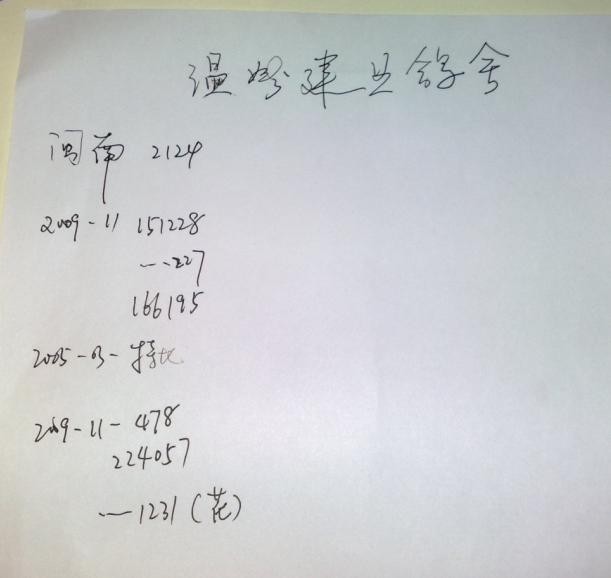 温岭建旦鸽舍
闽南 2124
2009-11 151228
---227
166195
2005-03-特比
2009-11-478
224057
---1231(花)